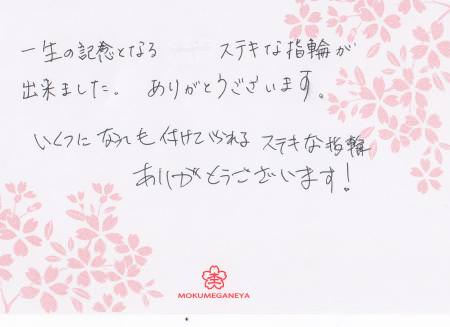 一生の記念となる ステキな指輪が
出来ました。 ありがとうございます。
いくつになっても付けていられるステキな指輪
ありがとうございます!
MOKUMEGANEYA